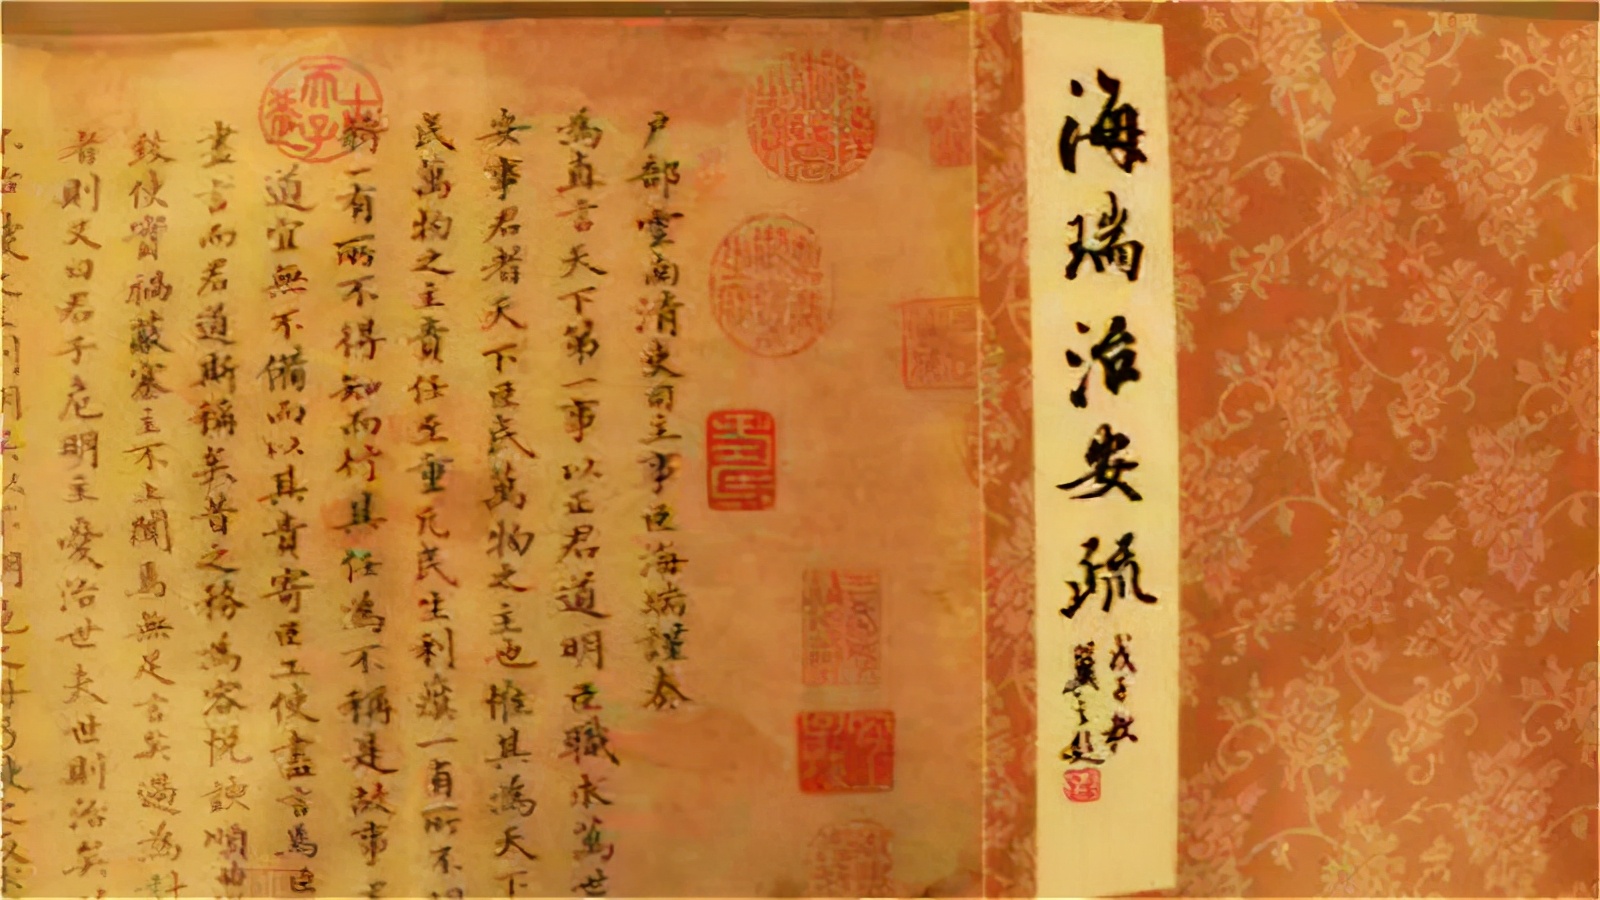 海瑞治安疏
戊子秋
户部雲南清吏司主事臣海瑞謹奏
為直言天下第一事以正君道明臣職求萬世
安事君者天下臣民萬物之主也惟其為天下
民萬物之主責任至重凡民生利瘼一有所不
一有所不得知而行其任為不稱是故事
道宜無不備而以其責寄臣工使盡言焉臣
盡言而君道斯稱矣昔之務為容悅諛順曲
致使實禍蔽塞主不上聞焉無足言矣過為計
者則又曰君子危明主憂治世夫世則治矣